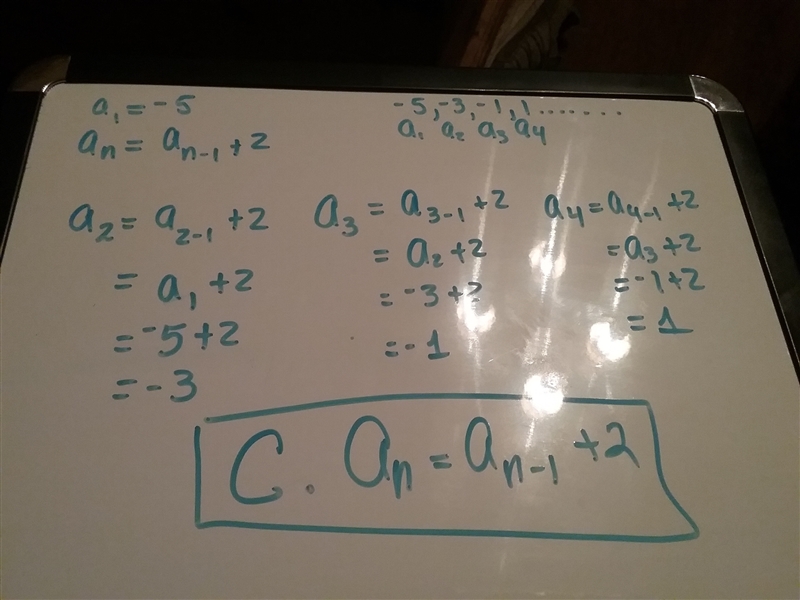 a₁ = -5
aₙ = aₙ₋₁ + 2
-5, -3, -1, 1.......
a₁ a₂ a₃ a₄
a₂ = a₂₋₁ + 2
= a₁ + 2
= -5 + 2
= -3
a₃ = a₃₋₁ + 2
= a₂ + 2
= -3 + 2
= -1
a₄ = a₄₋₁ + 2
= a₃ + 2
= -1 + 2
= 1
C. aₙ = aₙ₋₁ + 2